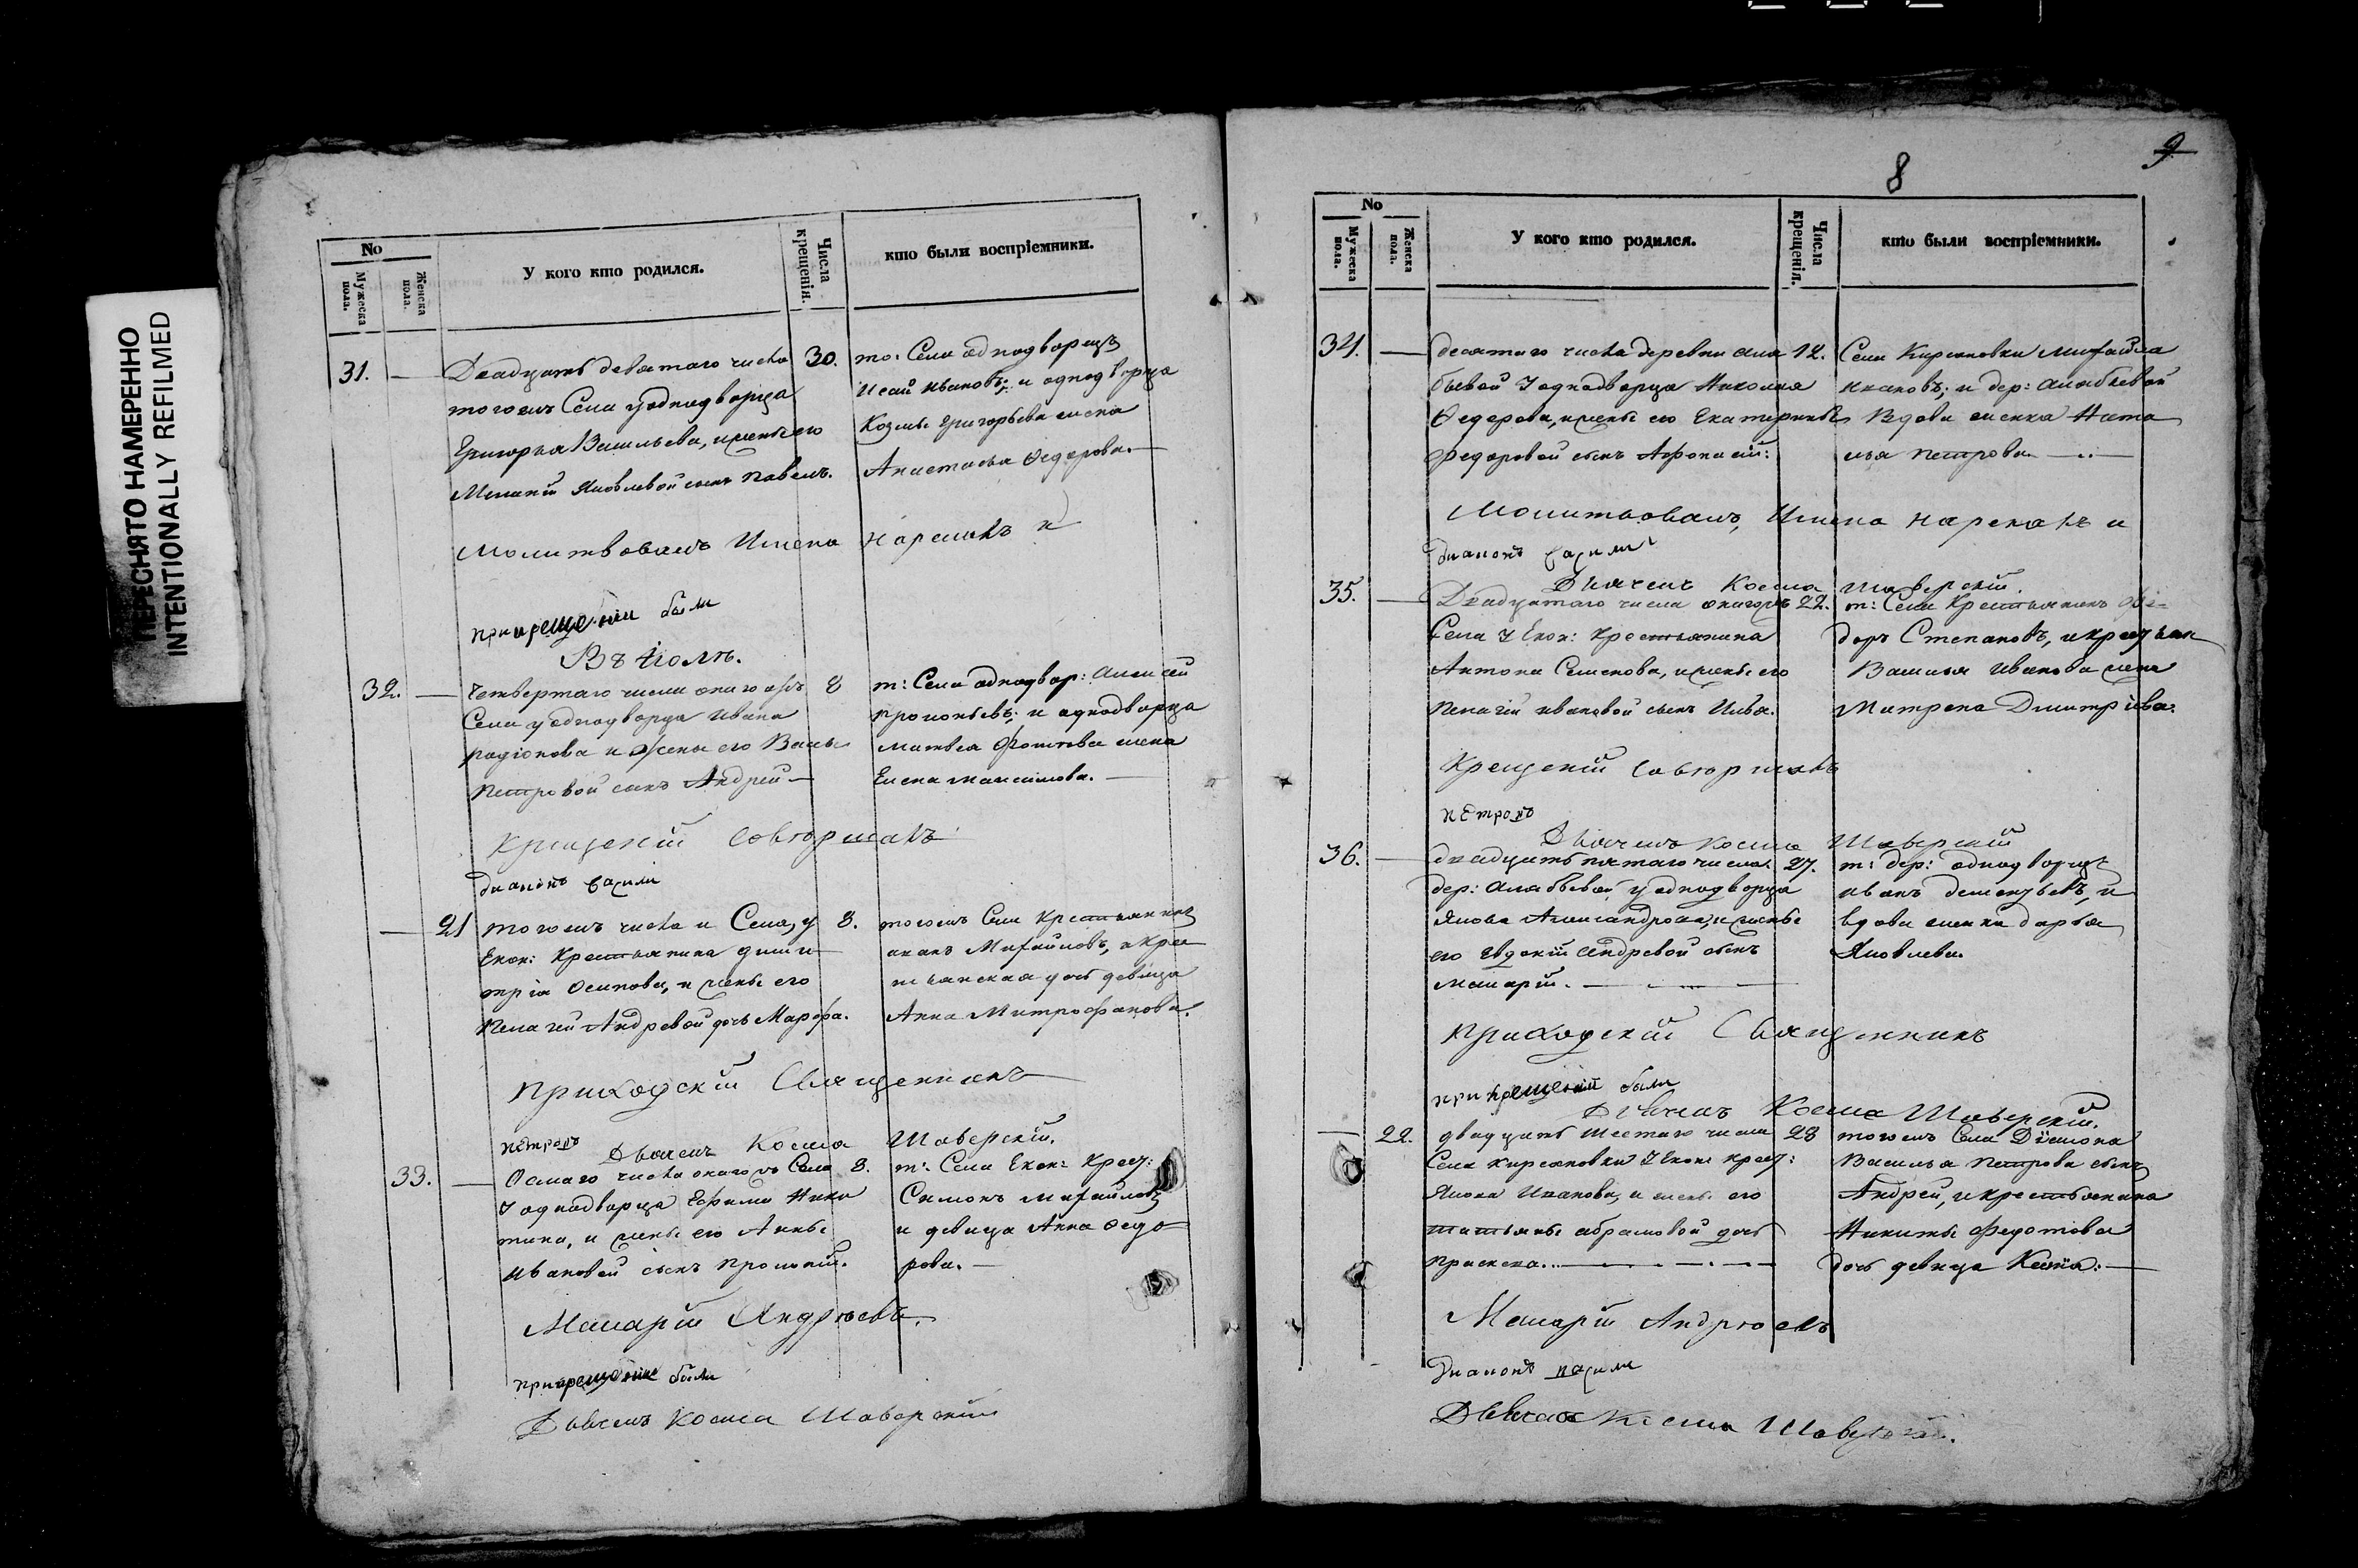 ПЕРЕСНЯТО НАМЕРЕННО
INTENTIONALLY REFILMED
No
Мужеска пола.
Женска пола.
У кого кто родился.
Числа крещенія.
кто были воспріемники.
31. — Двадцать девятаго числа 30.
тогожъ Села у однодворца
Григорья Васильева, и жены его
Меланіи Яковлевой сынъ Павелъ.
то: Села однодворецъ
Исай Ивановъ; и однодворца
Козмы Григорьева жена
Анастасья Федорова. —
Молитвовалъ Имена нарекалъ и
при крещеніи были
Въ Іюлѣ.
32. — Четвертаго числа онагожъ 8
Села у однодворца Ивана
Родіонова и жены его
Петровой сынъ Андрей —
т: Села однодвор: Алексей
Прокопьевъ; и однодворца
Матвея жена
Елена Максимова. —
Крещеніи совершалъ
диаконъ
— 21 тогожъ числа и Села, у 8.
Екон: Крестьянина Дими
трія Осипова, и жены его
Пелагіи Андревой дочь Марфа.
тогожъ Села Крестьянинъ
Иванъ Михайловъ, и кре
стьянская дочь девица
Анна Митрофанова.
Приходскій Священникъ
Петровъ
Дьячекъ Косма Шаверскій.
33. — Осмаго числа онагожъ Села 8.
У однодворца Ефима Ники
тина, и жены его Анны
Ивановой сынъ Прокопій.
т: Села Екон: Крест:
Симонъ Михайловъ
и девица Анна Федо
рова. —
Макарій Андрѣевъ.
при крещеніи были
Дьячекъ Косма Шаверскій
8
9
No
Мужеска пола.
Женска пола.
У кого кто родился.
Числа крещенія.
кто были воспріемники.
34. — десятаго числа деревни Ала 12.
бьевой У однодворца Николая
Федорова, и жены его Екатерины
Федоровой сынъ Афонасій:
Села Кирсановки Михайла
Ивановъ; и дер: Алабьевой
Вдова женка Ната
лья Петрова. —
Молитвовалъ, Имена нарекалъ и
диаконъ
Дьячекъ Косма Шаверскій.
35. — Двадцатаго числа онагожъ 22.
Села У Екон: Крестьянина
Антона Семенова, и жены его
Пелагіи Ивановой сынъ Илья.
т: Села Крестьянинъ
доръ Степановъ, и крестьян
Василья Иванова жена
Матрена Дмитріева.
Крещеніи совершалъ
Петровъ
Дьячекъ Косма Шаверскій
36. — двадцать пятаго числа. 27.
дер: Алабьевой у однодворца
Якова Александрова, и жены
его Евдокіи Андревой сынъ
Макарій. —
т: дер: однодворецъ
Иванъ Дементьевъ, и
вдова женка Дарья
Яковлева.
Приходскій Священникъ
при крещеніи были
Дьячекъ Косма Шаверскій.
— 22. двадцать шестаго числа 28
Села Кирсановки У Екон: крест:
Якова Иванова, и жены его
Татьяны Абрамовой дочь
Прасковья. —
тогожъ Села Діакона
Василья Петрова сынъ
Андрей, и крестьянина
Никиты Федотова
дочь девица Ксенія. —
Макарій Андрѣевъ
Диаконъ
Дьячекъ Косма Шаверскій.